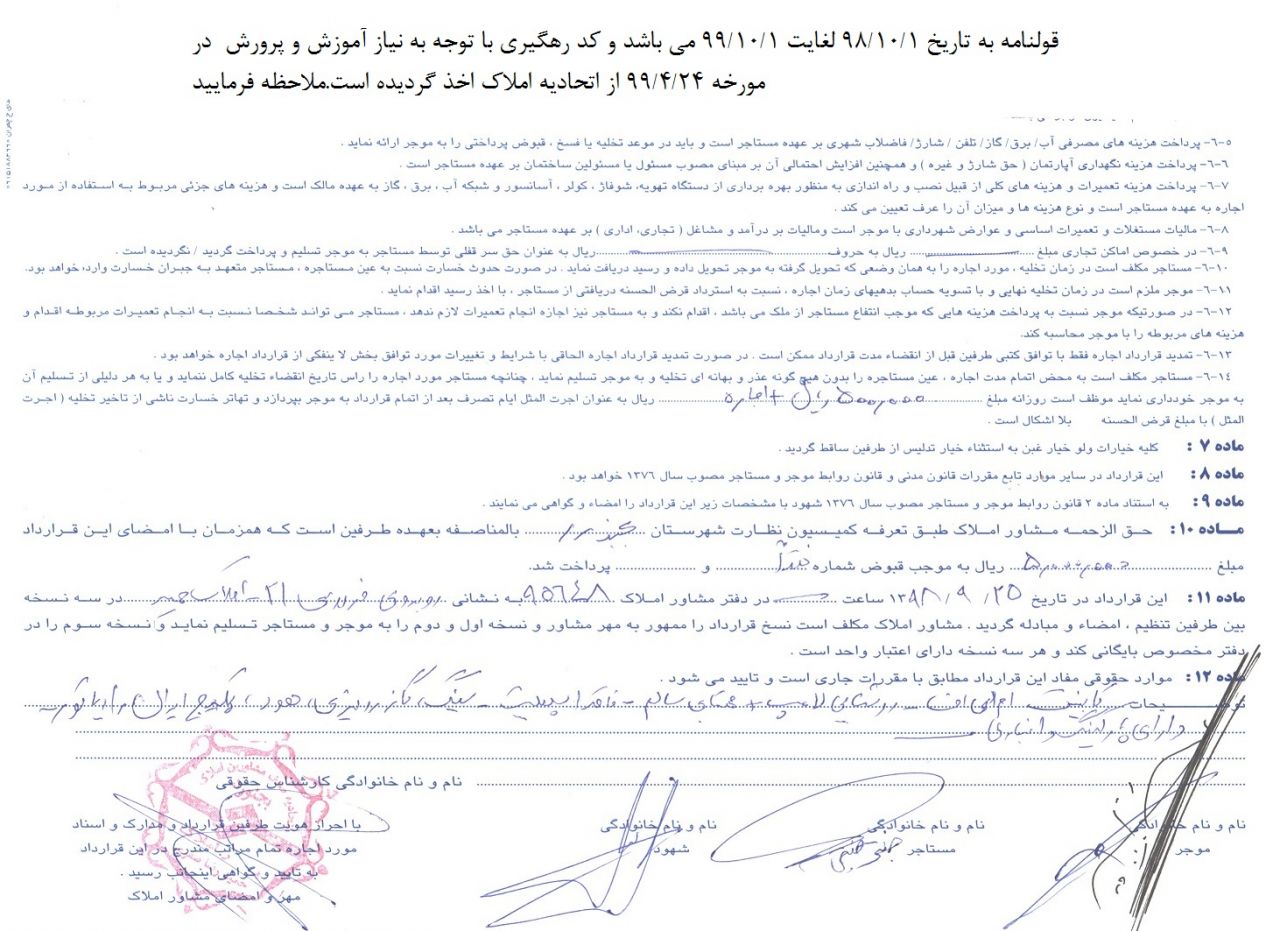 قولنامه به تاریخ ۹۸/۱۰/۱ لغایت ۹۹/۱۰/۱ می باشد و کد رهگیری با توجه به نیاز آموزش و پرورش در
مورخه ۹۹/۴/۲۴ از اتحادیه املاک اخذ گردیده است.ملاحظه فرمایید
۵-۶- پرداخت هزینه های مصرفی آب/ برق/ گاز/ تلفن / شارژ/ فاضلاب شهری بر عهده مستاجر است و باید در موعد تخلیه یا فسخ ، قبوض پرداختی را به موجر ارائه نماید .
۶-۶- پرداخت هزینه نگهداری آپارتمان ( حق شارژ و غیره ) و همچنین افزایش احتمالی آن بر مبنای مصوب مسئول یا مسئولین ساختمان بر عهده مستاجر است .
۷-۶- پرداخت هزینه تعمیرات و هزینه های کلی از قبیل نصب و راه اندازی به منظور بهره برداری از دستگاه تهویه، شوفاژ ، کولر ، آسانسور و شبکه آب ، برق ، گاز به عهده مالک است و هزینه های جزئی مربوط به استفاده از مورد
اجاره به عهده مستاجر است و نوع هزینه ها و میزان آن را عرف تعیین می کند .
۸-۶- مالیات مستغلات و تعمیرات اساسی و عوارض شهرداری با موجر است ومالیات بر درآمد و مشاغل ( تجاری، اداری ) بر عهده مستاجر می باشد .
۹-۶- در خصوص اماکن تجاری مبلغ .......... ریال به حروف .......... ریال به عنوان حق سر قفلی توسط مستاجر به موجر تسلیم و پرداخت گردید / نگردیده است .
۱۰-۶- مستاجر مکلف است در زمان تخلیه ، مورد اجاره را به همان وضعی که تحویل گرفته به موجر تحویل داده و رسید دریافت نماید . در صورت حدوث خسارت نسبت به عین مستاجره ، مستاجر متعهد به جبران خسارت وارده خواهد بود.
۱۱-۶- موجر ملزم است در زمان تخلیه نهایی و با تسویه حساب بدهیهای زمان اجاره ، نسبت به استرداد قرض الحسنه دریافتی از مستاجر ، با اخذ رسید اقدام نماید .
۱۲-۶- در صورتیکه موجر نسبت به پرداخت هزینه هایی که موجب انتفاع مستاجر از ملک می باشد ، اقدام نکند و به مستاجر نیز اجازه انجام تعمیرات لازم ندهد ، مستاجر می تواند شخصا نسبت به انجام تعمیرات مربوطه اقدام و
هزینه های مربوطه را با موجر محاسبه کند.
۱۳-۶- تمدید قرارداد اجاره فقط با توافق کتبی طرفین قبل از انقضاء مدت قرارداد ممکن است . در صورت تمدید قرارداد اجاره الحاقی با شرایط و تغییرات مورد توافق بخش لا ینفکی از قرارداد اجاره خواهد بود .
۱۴-۶- مستاجر مکلف است به محض اتمام مدت اجاره ، عین مستاجره را بدون هیچ گونه عذر و بهانه ای تخلیه و به موجر تسلیم نماید ، چنانچه مستاجر مورد اجاره را راس تاریخ انقضاء تخلیه کامل ننماید و یا به هر دلیلی از تسلیم آن
به موجر خودداری نماید موظف است روزانه مبلغ ۵۰۰٫۰۰۰ ریال + اجاره ریال به عنوان اجرت المثل ایام تصرف بعد از اتمام قرارداد به موجر بپردازد و تهاتر خسارت ناشی از تاخیر تخلیه ( اجرت
المثل ) با مبلغ قرض الحسنه بلا اشکال است .
ماده ۷ : کلیه خیارات ولو خیار غبن به استثناء خیار تدلیس از طرفین ساقط گردید .
ماده ۸ : این قرارداد در سایر موارد تابع مقررات قانون مدنی و قانون روابط موجر و مستاجر مصوب سال ۱۳۷۶ خواهد بود .
ماده ۹ : به استناد ماده ۲ قانون روابط موجر و مستاجر مصوب سال ۱۳۷۶ شهود با مشخصات زیر این قرارداد را امضاء و گواهی می نمایند .
ماده ۱۰ : حق الزحمه مشاور املاک طبق تعرفه کمیسیون نظارت شهرستان بجنورد بالمناصفه بعهده طرفین است که همزمان با امضای این قرارداد
مبلغ ۵٫۰۰۰٫۰۰۰ ریال به موجب قبوض شماره نقداً و .......... پرداخت شد.
ماده ۱۱ : این قرارداد در تاریخ ۱۳۹۸/۹/۲۵ ساعت .......... در دفتر مشاور املاک ۹۵۶۴۸ به نشانی روبروی فردوسی ۲۱ - املاک در سه نسخه
بین طرفین تنظیم ، امضاء و مبادله گردید . مشاور املاک مکلف است نسخ قرارداد را ممهور به مهر مشاور و نسخه اول و دوم را به موجر و مستاجر تسلیم نماید و نسخه سوم را در
دفتر مخصوص بایگانی کند و هر سه نسخه دارای اعتبار واحد است .
ماده ۱۲ : موارد حقوقی مفاد این قرارداد مطابق با مقررات جاری است و تایید می شود .
توضیحات کابینت ام دی اف - روشنایی لامپ + همگی سالم - فاقد اسپلیت - سینک، گاز رومیزی، هود، پکیج ایران رادیاتور
دارای پارکینگ و انباری
نام و نام خانوادگی کارشناس حقوقی
نام و نام خانوادگی موجر
نام و نام خانوادگی مستاجر
نام و نام خانوادگی شهود
با احراز هویت طرفین قرارداد و مدارک و اسناد
مورد اجاره تمام مراتب مندرج در این قرارداد
به تایید و گواهی اینجانب رسید .
مهر و امضای مشاور املاک